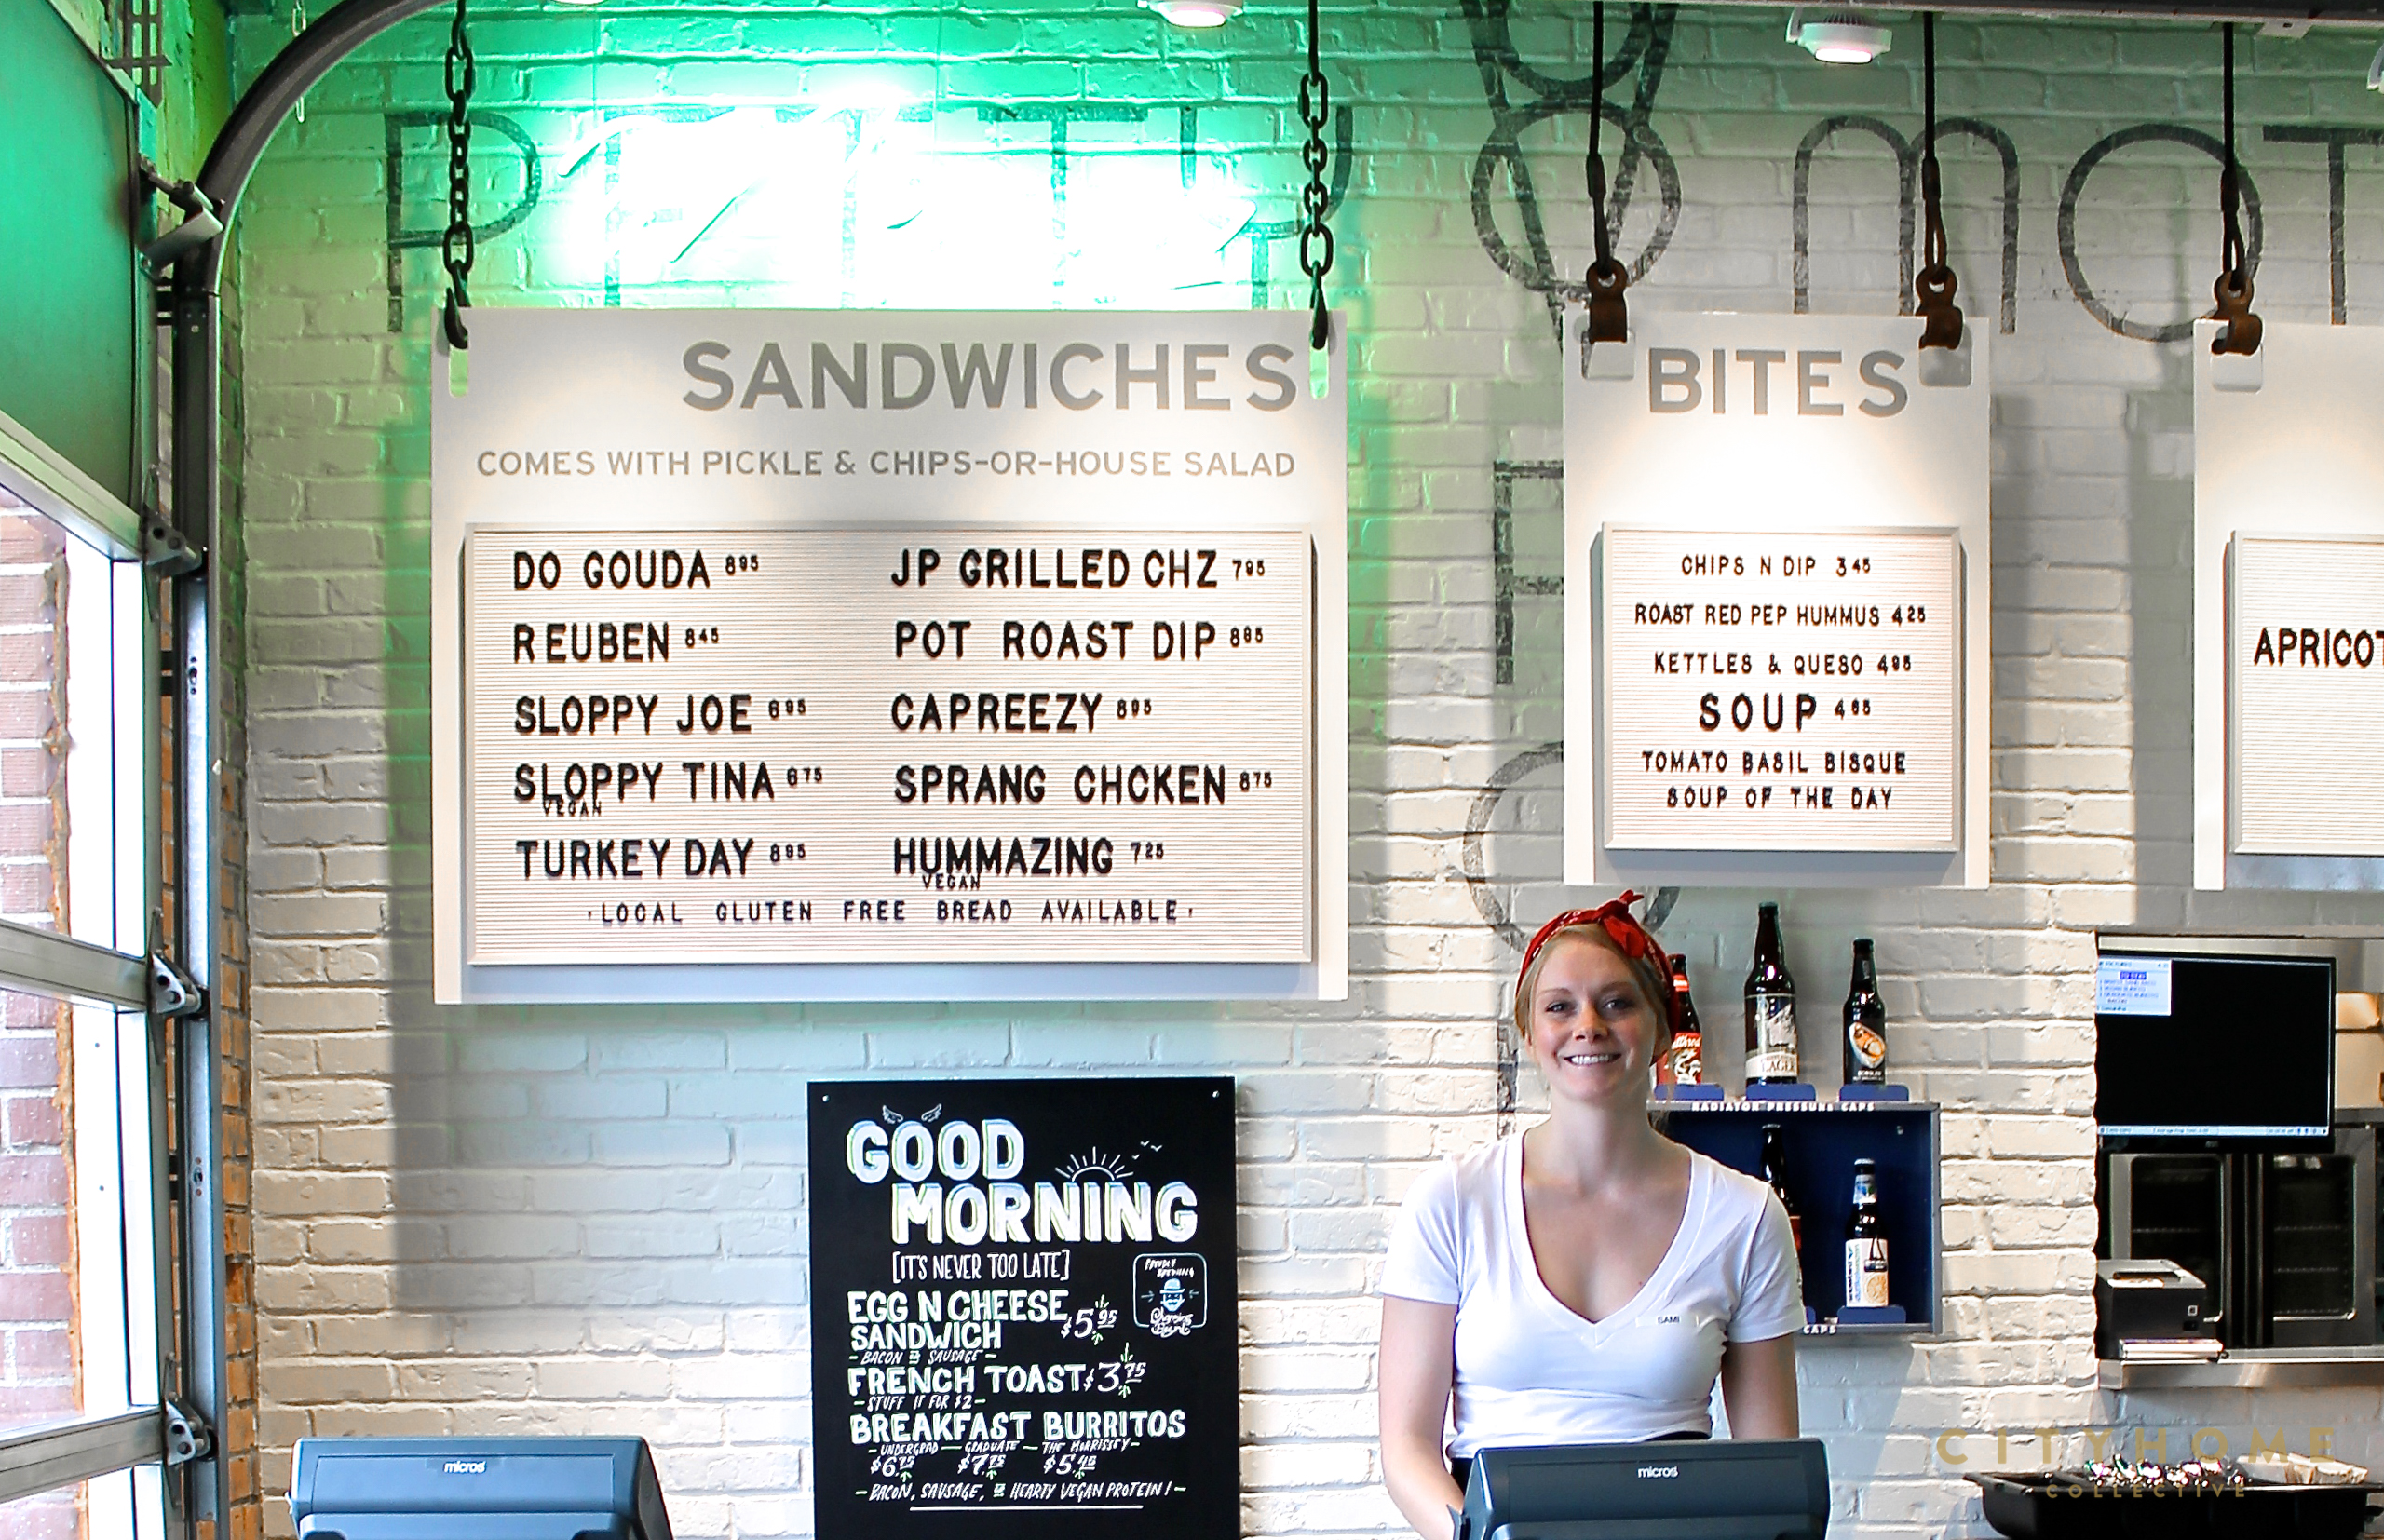 PETTY & MOT
SANDWICHES
COMES WITH PICKLE & CHIPS-OR-HOUSE SALAD
DO GOUDA 895
REUBEN 845
SLOPPY JOE 695
SLOPPY TINA 675
VEGAN
TURKEY DAY 895
JP GRILLED CHZ 795
POT ROAST DIP 895
CAPREEZY 895
SPRANG CHCKEN 875
HUMMAZING 725
VEGAN
LOCAL GLUTEN FREE BREAD AVAILABLE
BITES
CHIPS N DIP 345
ROAST RED PEP HUMMUS 425
KETTLES & QUESO 495
SOUP 465
TOMATO BASIL BISQUE
SOUP OF THE DAY
APRICOT
GOOD
MORNING
[IT'S NEVER TOO LATE]
EGG N CHEESE
SANDWICH $5.95
- BACON OR SAUSAGE -
FRENCH TOAST $3.75
- STUFF IT FOR $2 -
BREAKFAST BURRITOS
- UNDERGRAD - GRADUATE - THE MORRISSEY -
$6.75 $7.75 $5.45
- BACON, SAUSAGE, OR HEARTY VEGAN PROTEIN! -
LAGER
RADIATOR PRESSURE CAPS
CAPS
SAMI
micros
micros
CITYHOME
COLLECTIVE